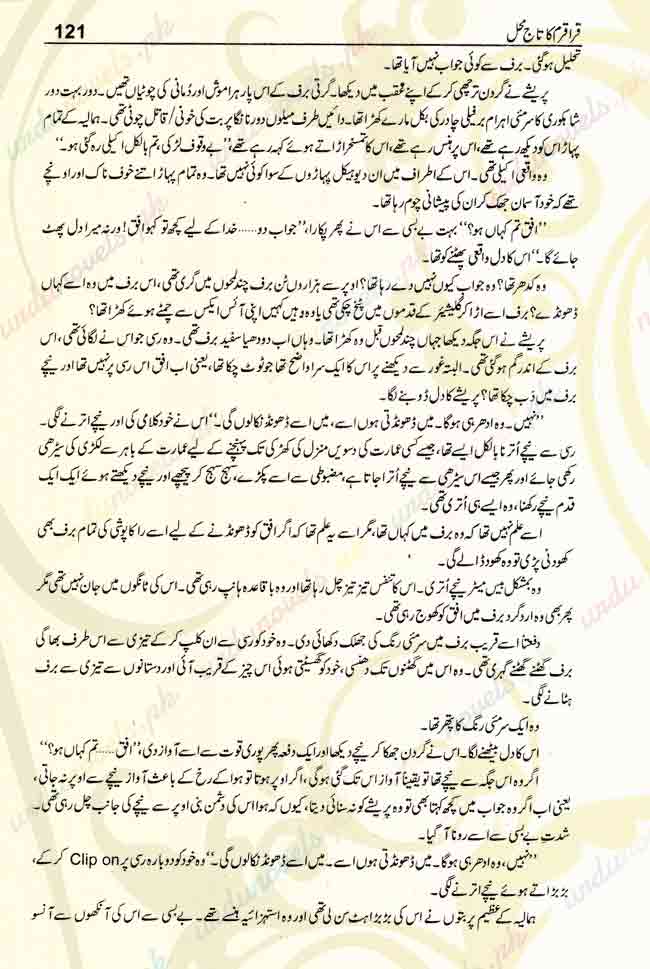 قراقرم کا تاج محل 121
تحلیل ہو گئی۔ برف سے کوئی جواب نہیں آیا تھا۔
پریشے نے گردن ترچھی کر کے اپنے عقب میں دیکھا۔ گرتی برف کے اس پار ہراموش اور دُمانی کی چوٹیاں تھیں۔ دور بہت دور
شاہگوری کا سرمئی اہرام برفیلی چادر کی بکل مارے کھڑا تھا۔ دائیں طرف میلوں دور نانگا پربت کی خونی/ قاتل چوٹی تھی۔ ہمالیہ کے تمام
پہاڑ اس کو دیکھ رہے تھے، اس پر ہنس رہے تھے، اس کا تمسخر اڑاتے ہوئے کہہ رہے تھے، ”بے وقوف لڑکی، تم بالکل اکیلی رہ گئی ہو۔“
وہ واقعی اکیلی تھی۔ اس کے اطراف میں ان دیوہیکل پہاڑوں کے سوا کوئی نہیں تھا۔ وہ تمام پہاڑ اتنے خوف ناک اور اونچے
تھے کہ خود آسمان جھک کر ان کی پیشانی چوم رہا تھا۔
”افق تم کہاں ہو؟“ بہت بے بسی سے اس نے پھر پکارا، ”جواب دو ...... خدا کے لیے کچھ تو کہو افق! ورنہ میرا دل پھٹ
جائے گا۔“ اس کا دل واقعی پھٹنے کو تھا۔
وہ کدھر تھا؟ وہ جواب کیوں نہیں دے رہا تھا؟ اوپر سے ہزاروں ٹن برف چند لمحوں میں گری تھی، اس برف میں وہ اسے کہاں
ڈھونڈے؟ برف اسے اڑا کر گلیشیئر کے قدموں میں پٹخ چکی تھی یا وہ وہیں کہیں اپنی آئس ایکس سے چمٹے ہوئے کھڑا تھا؟
پریشے نے اس جگہ دیکھا جہاں چند لمحوں قبل وہ کھڑا تھا۔ وہاں اب دودھیا سفید برف تھی۔ وہ رسی جو اس نے لگائی تھی، اس
برف کے اندر گم ہو گئی تھی۔ البتہ غور سے دیکھنے پر اس کا ایک سرا واضح تھا جو ٹوٹ چکا تھا، یعنی اب افق اس رسی پر نہیں تھا اور نیچے
برف میں دَب چکا تھا؟ پریشے کا دل ڈوبنے لگا۔
”نہیں۔ وہ ادھر ہی ہو گا۔ میں ڈھونڈتی ہوں اسے، میں اسے ڈھونڈ نکالوں گی۔“ اس نے خودکلامی کی اور نیچے اترنے لگی۔
رسی سے نیچے اُترنا بالکل ایسے تھا، جیسے کسی عمارت کی دسویں منزل کی کھڑکی تک پہنچنے کے لیے عمارت کے باہر سے لکڑی کی سیڑھی
رکھی جائے اور پھر جیسے اس سیڑھی سے نیچے اُترا جاتا ہے، مضبوطی سے اسے پکڑے، سہج سہج کر پیچھے اور نیچے دیکھتے ہوئے ایک ایک
قدم نیچے رکھنا، وہ ایسے ہی اُتری تھی۔
اسے علم نہیں تھا کہ وہ برف میں کہاں تھا، مگر اسے یہ علم تھا کہ اگر افق کو ڈھونڈنے کے لیے اسے راکاپوشی کی تمام برف بھی
کھودنی پڑی تو وہ کھود ڈالے گی۔
وہ بمشکل بیس میٹر نیچے اُتری۔ اس کا تنفس تیز تیز چل رہا تھا اور وہ باقاعدہ ہانپ رہی تھی۔ اس کی ٹانگوں میں جان نہیں تھی مگر
پھر بھی وہ ارد گرد برف میں افق کو کھوج رہی تھی۔
دفعتاً اسے قریب برف میں سرمئی رنگ کی جھلک دکھائی دی۔ وہ خود کو رسی سے ان کلپ کر کے تیزی سے اس طرف بھاگی
برف گھٹنے گھٹنے گہری تھی۔ وہ اس میں گھٹنوں تک دھنسی، خود کو گھسیٹتی ہوئی اس چیز کے قریب آئی اور دستانوں سے تیزی سے برف
ہٹانے لگی۔
وہ ایک سرمئی رنگ کا پتھر تھا۔
اس کا دل بیٹھنے لگا۔ اس نے گردن جھکا کر نیچے دیکھا اور ایک دفعہ پھر پوری قوت سے اسے آواز دی، ”افق ..... تم کہاں ہو؟“
اگر وہ اس جگہ سے نیچے تھا تو یقیناً آواز اس تک گئی ہو گی، اگر اوپر ہوتا تو ہوا کے رخ کے باعث آواز نیچے سے اوپر نہ جاتی،
یعنی اب اگر وہ جواب میں کچھ کہتا بھی تو وہ پریشے کو نہ سنائی دیتا، کیوں کہ ہوا اس کی دشمن بنی اوپر سے نیچے کی جانب چل رہی تھی۔
شدتِ بے بسی سے اسے رونا آ گیا۔
”نہیں، وہ ادھر ہی ہو گا۔ میں ڈھونڈتی ہوں اسے۔ میں اسے ڈھونڈ نکالوں گی۔“ وہ خود کو دوبارہ رسی پر Clip on کر کے،
بڑبڑاتے ہوئے نیچے اترنے لگی۔
ہمالیہ کے عظیم پربتوں نے اس کی بڑبڑاہٹ سن لی تھی اور وہ استہزائیہ ہنسے تھے۔ بے بسی سے اس کی آنکھوں سے آنسو